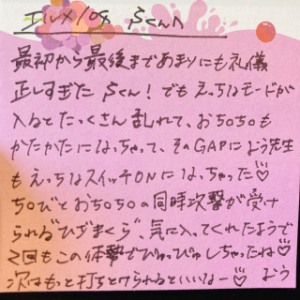 エルメ/09 ㄣくんへ
最初から最後まであまりにも礼儀
正しすぎたㄣくん！でもえっちなモードが
入るとたっくさん乱れて、おち○ちも
かたかたになっちゃって、そのGAPによう先生
もえっちなスイッチONになっちゃった♡
ち○びとおち○ちの同時攻撃が受け
られる"ひざまくら"、気に入ってくれたようで
2回もこの体勢でぴゅっぴゅしちゃったね♡
次はもっと打ちとけられるといいなー♡ よう